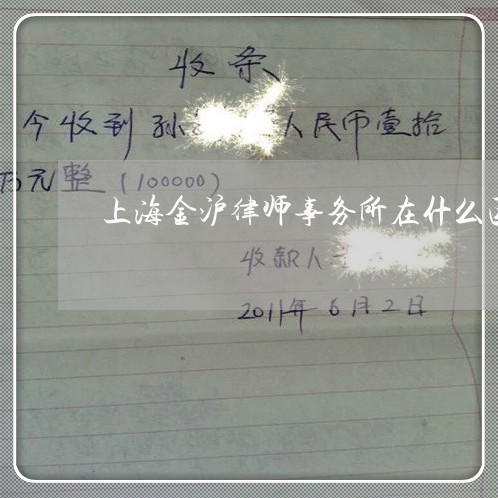 收条
今收到孙 人民币壹拾
万元整(100000)
上海金沪律师事务所在什么
收款人
2011年6月2日